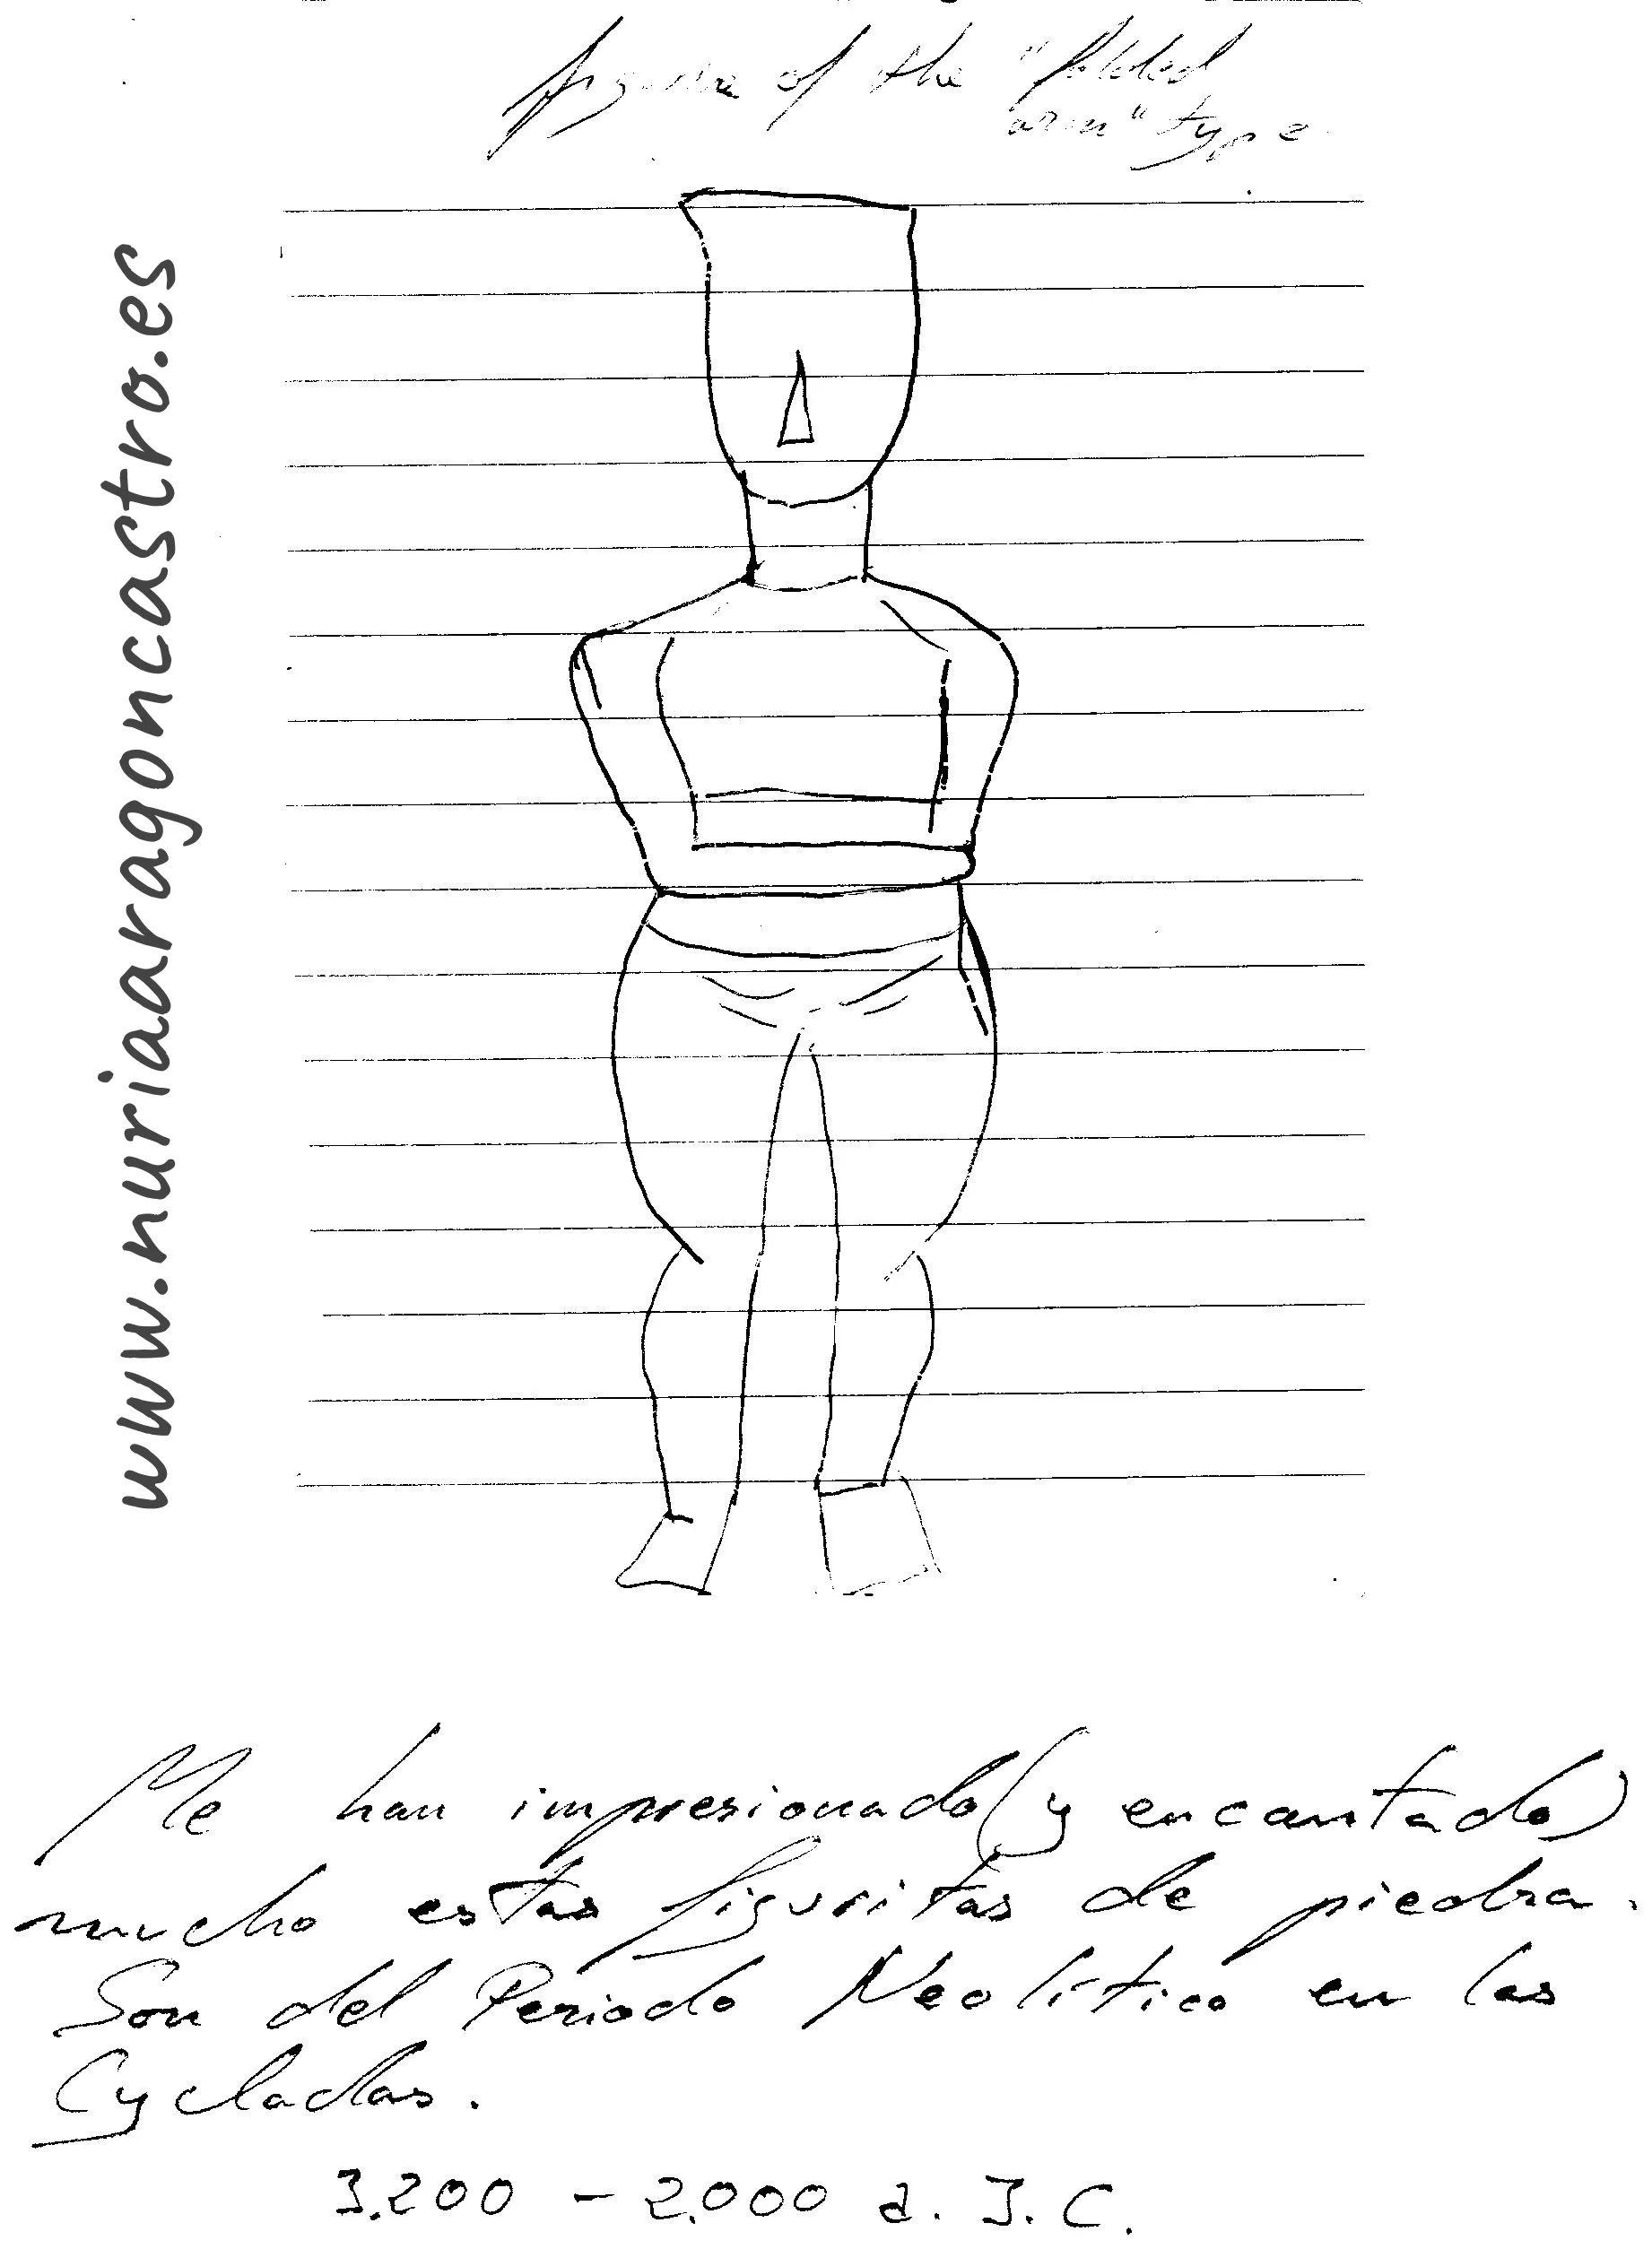 figure of the "folded
arm" type
www.nuriaaragoncastro.es
Me han impresionado (y encantado)
mucho estas figuritas de piedra.
Son del Periodo Neolítico en las
Cycladas.
3.200 - 2.000 a. J.C.